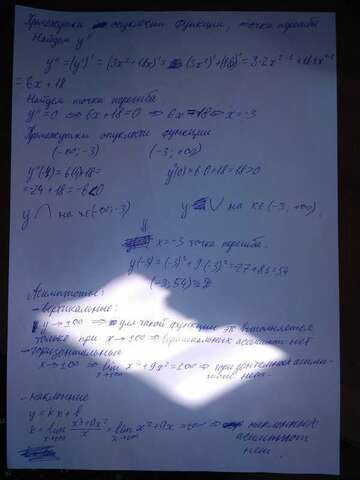 Промежутки выпуклости функции, точка перегиба
Найдем y''
y'' = (y')' = (3x² + 18x)' = (3x²)' + (18x)' = 3·2x²⁻¹ + 18·1x¹⁻¹
= 6x + 18
Найдем точки перегиба
y'' = 0 ⇒ 6x + 18 = 0 ⇒ 6x = -18 ⇒ x = -3
Промежутки выпуклости функции
(-∞; -3) (-3; +∞)
y''(-4) = 6(-4) + 18 = y''(0) = 6·0 + 18 = 18 > 0
= -24 + 18 = -6 < 0
y ∩ на x∈(-∞; -3) y ∪ на x∈(-3; +∞)
⇓
x = -3 точка перегиба.
y(-3) = (-3)³ + 9·(-3)² = -27 + 81 = 54
(-3; 54)
Асимптоты:
- вертикальные:
y → ±∞ ⇒ для такой функции это выполняется
только при x → ±∞ ⇒ вертикальных асимптот нет
- горизонтальные
x → ±∞ ⇒ lim x→±∞ x³ + 9x² = ±∞ ⇒ горизонтальных асимп-
тот нет.
- наклонные
y = kx + b
k = lim x→±∞ (x³ + 9x²)/x = lim x→±∞ x² + 9x = ∞ ⇒ наклонных
асимптот
нет.